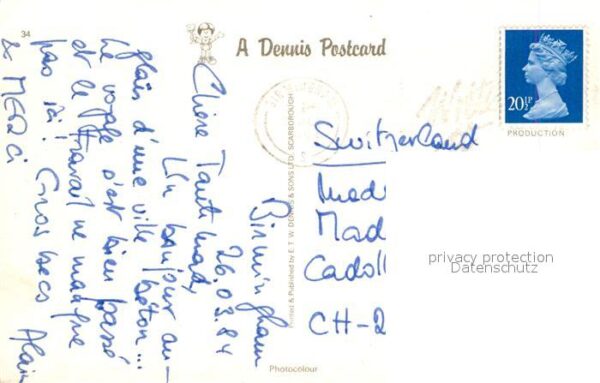 34
A Dennis Postcard
20½P
PRODUCTION
Birmingham
26.03.84
Chère
Un bonjour au-
d'une ville béton...
Le voyage s'est bien passé
et le travail ne manque
pas ici! Gros becs
& MERCI Alain
Switzerland
Mad
Cadoll
CH-2
privacy protection
Datenschutz
Printed & Published by E. T. W. DENNIS & SONS LTD., SCARBOROUGH
Photocolour